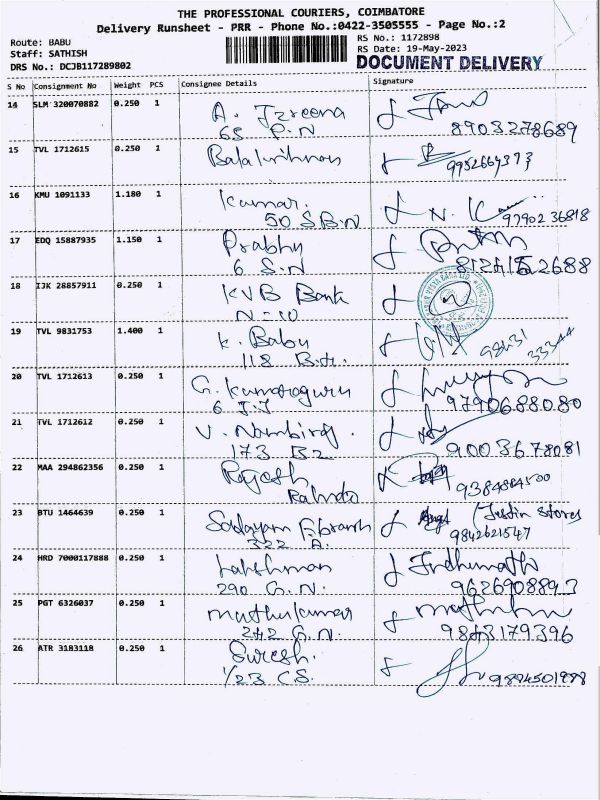 THE PROFESSIONAL COURIERS, COIMBATORE
Delivery Runsheet - PRR - Phone No.:0422-3505555 - Page No.:2
Route: BABU
Staff: SATHISH
DRS No.: DCJB117289802
RS No.: 1172898
RS Date: 19-May-2023
DOCUMENT DELIVERY
S No Consignment No Weight PCS Consignee Details Signature
14 SLM 320070882 0.250 1 A. Izreena
65 P.N 8903278689
15 TVL 1712615 0.250 1 Balakrishnan 9952669373
16 KMU 1091133 1.180 1 Kumar. N. K
50 S.B.N 9790236818
17 EDQ 15887935 1.150 1 Prabhu
6 S.N
18 IJK 28857911 0.250 1 KVB Bank
N-10
19 TVL 9831753 1.400 1 K. Babu
118 98431 33344
20 TVL 1712613 0.250 1 G. Kumaraguru
6 J.J 9790688080
21 TVL 1712612 0.250 1 V. Nambiraj.
173 B2 9003678081
22 MAA 294862356 0.250 1 Rajesh
9384884500
23 BTU 1464639 0.250 1 (Justin Stores
322 A. 9842621547
24 HRD 7000117888 0.250 1 Lakshman Indhumathi
290 G.N. 9626908893
25 PGT 6326037 0.250 1 Muthukumar
242 G.N. 9843179396
26 ATR 3183118 0.250 1 Suresh.
1/23 C.S. 9894501988